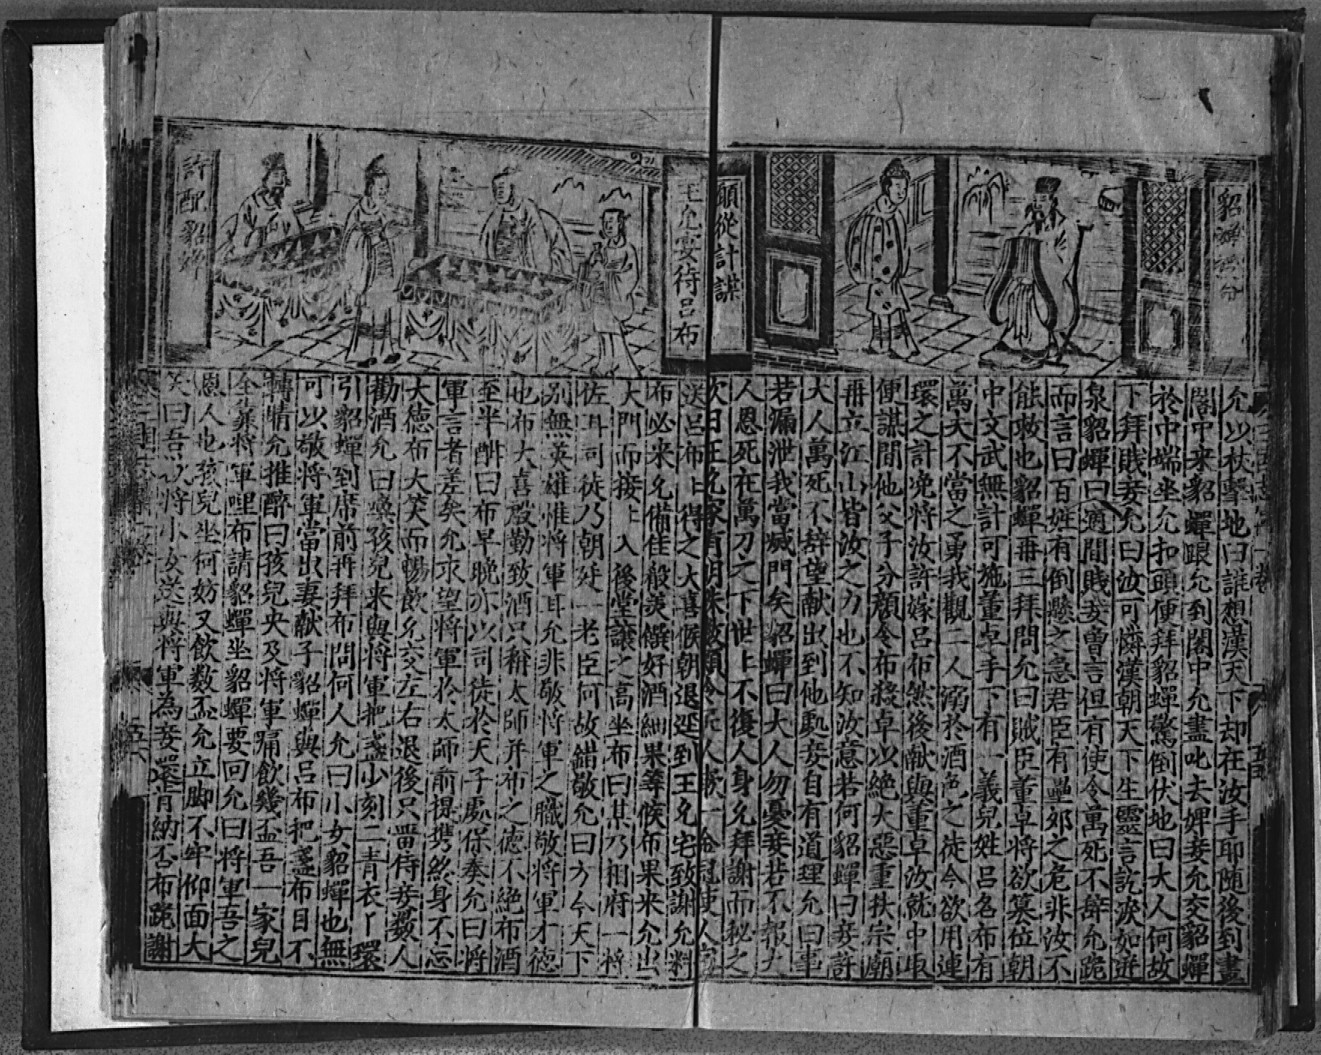 貂蟬
願從計謀
允以杖擊地曰誰想漢天下却在汝手耶随後到畫
閣中来貂蟬跟允到閣中允盡叱去婢妾允交貂蟬
於中端坐允扣頭便拜貂蟬驚倒伏地曰大人何故
下拜賎妾允曰汝可憐漢朝天下生靈言訖淚如迸
泉貂蟬曰適間賎妾曽言但有使令萬死不辭允跪
而言曰百姓有倒懸之急君臣有壘卵之危非汝不
能救也貂蟬再三拜問允曰賊臣董卓将欲篡位朝
中文武無計可施董卓手下有一義兒姓吕名布有
萬夫不當之勇我觀二人溺於酒色之徒今欲用連
環之計先将汝許嫁吕布然後献與董卓汝就中取
便諜間他父子分顔令布殺卓以絶大惡重扶宗廟
再立江山皆汝之力也不知汝意若何貂蟬曰妾許
大人萬死不辞望献出到他處妾自有道理允曰事
若漏泄我當滅門矣貂蟬曰大人勿憂妾若不報大
人恩死在萬刀之下世上不復人身允拜謝而秘之
次曰王允家有明珠数顆令匠人嵌一金冠使人密
王允宴待吕布
許配貂蟬
送吕布布得之大喜候朝退逕到王允宅致謝允料
布必来允備佳殽美饌好酒細果等候布果来允出
大門而接入後堂讓之高坐布曰某乃相府一将
佐耳司徒乃朝廷一老臣何故錯敬允曰方今天下
别無英雄惟将軍耳允非敬将軍之職敬将軍才德
也布大喜慇勤致酒只稱太師并布之德不絶布酒
至半酣曰布早晩亦以司徒於天子處保奏允曰将
軍言者差矣允求望将軍於太師前提携終身不忘
大德布大笑而暢飲允交左右退後只畱侍妾數人
勸酒允曰喚孩兒来與将軍把盞少刻二青衣丫環
引貂蟬到席前再拜布問何人允曰小女貂蟬也無
可以敬将軍當出妻献子貂蟬與吕布把盞布目不
轉情允推醉曰孩兒央及将軍痛飲幾盃吾一家兒
全靠将軍哩布請貂蟬坐貂蟬要回允曰将軍吾之
恩人也孩兒坐何妨又飲数盃允立脚不牢仰面大
笑曰吾欲将小女送與将軍為妾還肯納否布跪謝